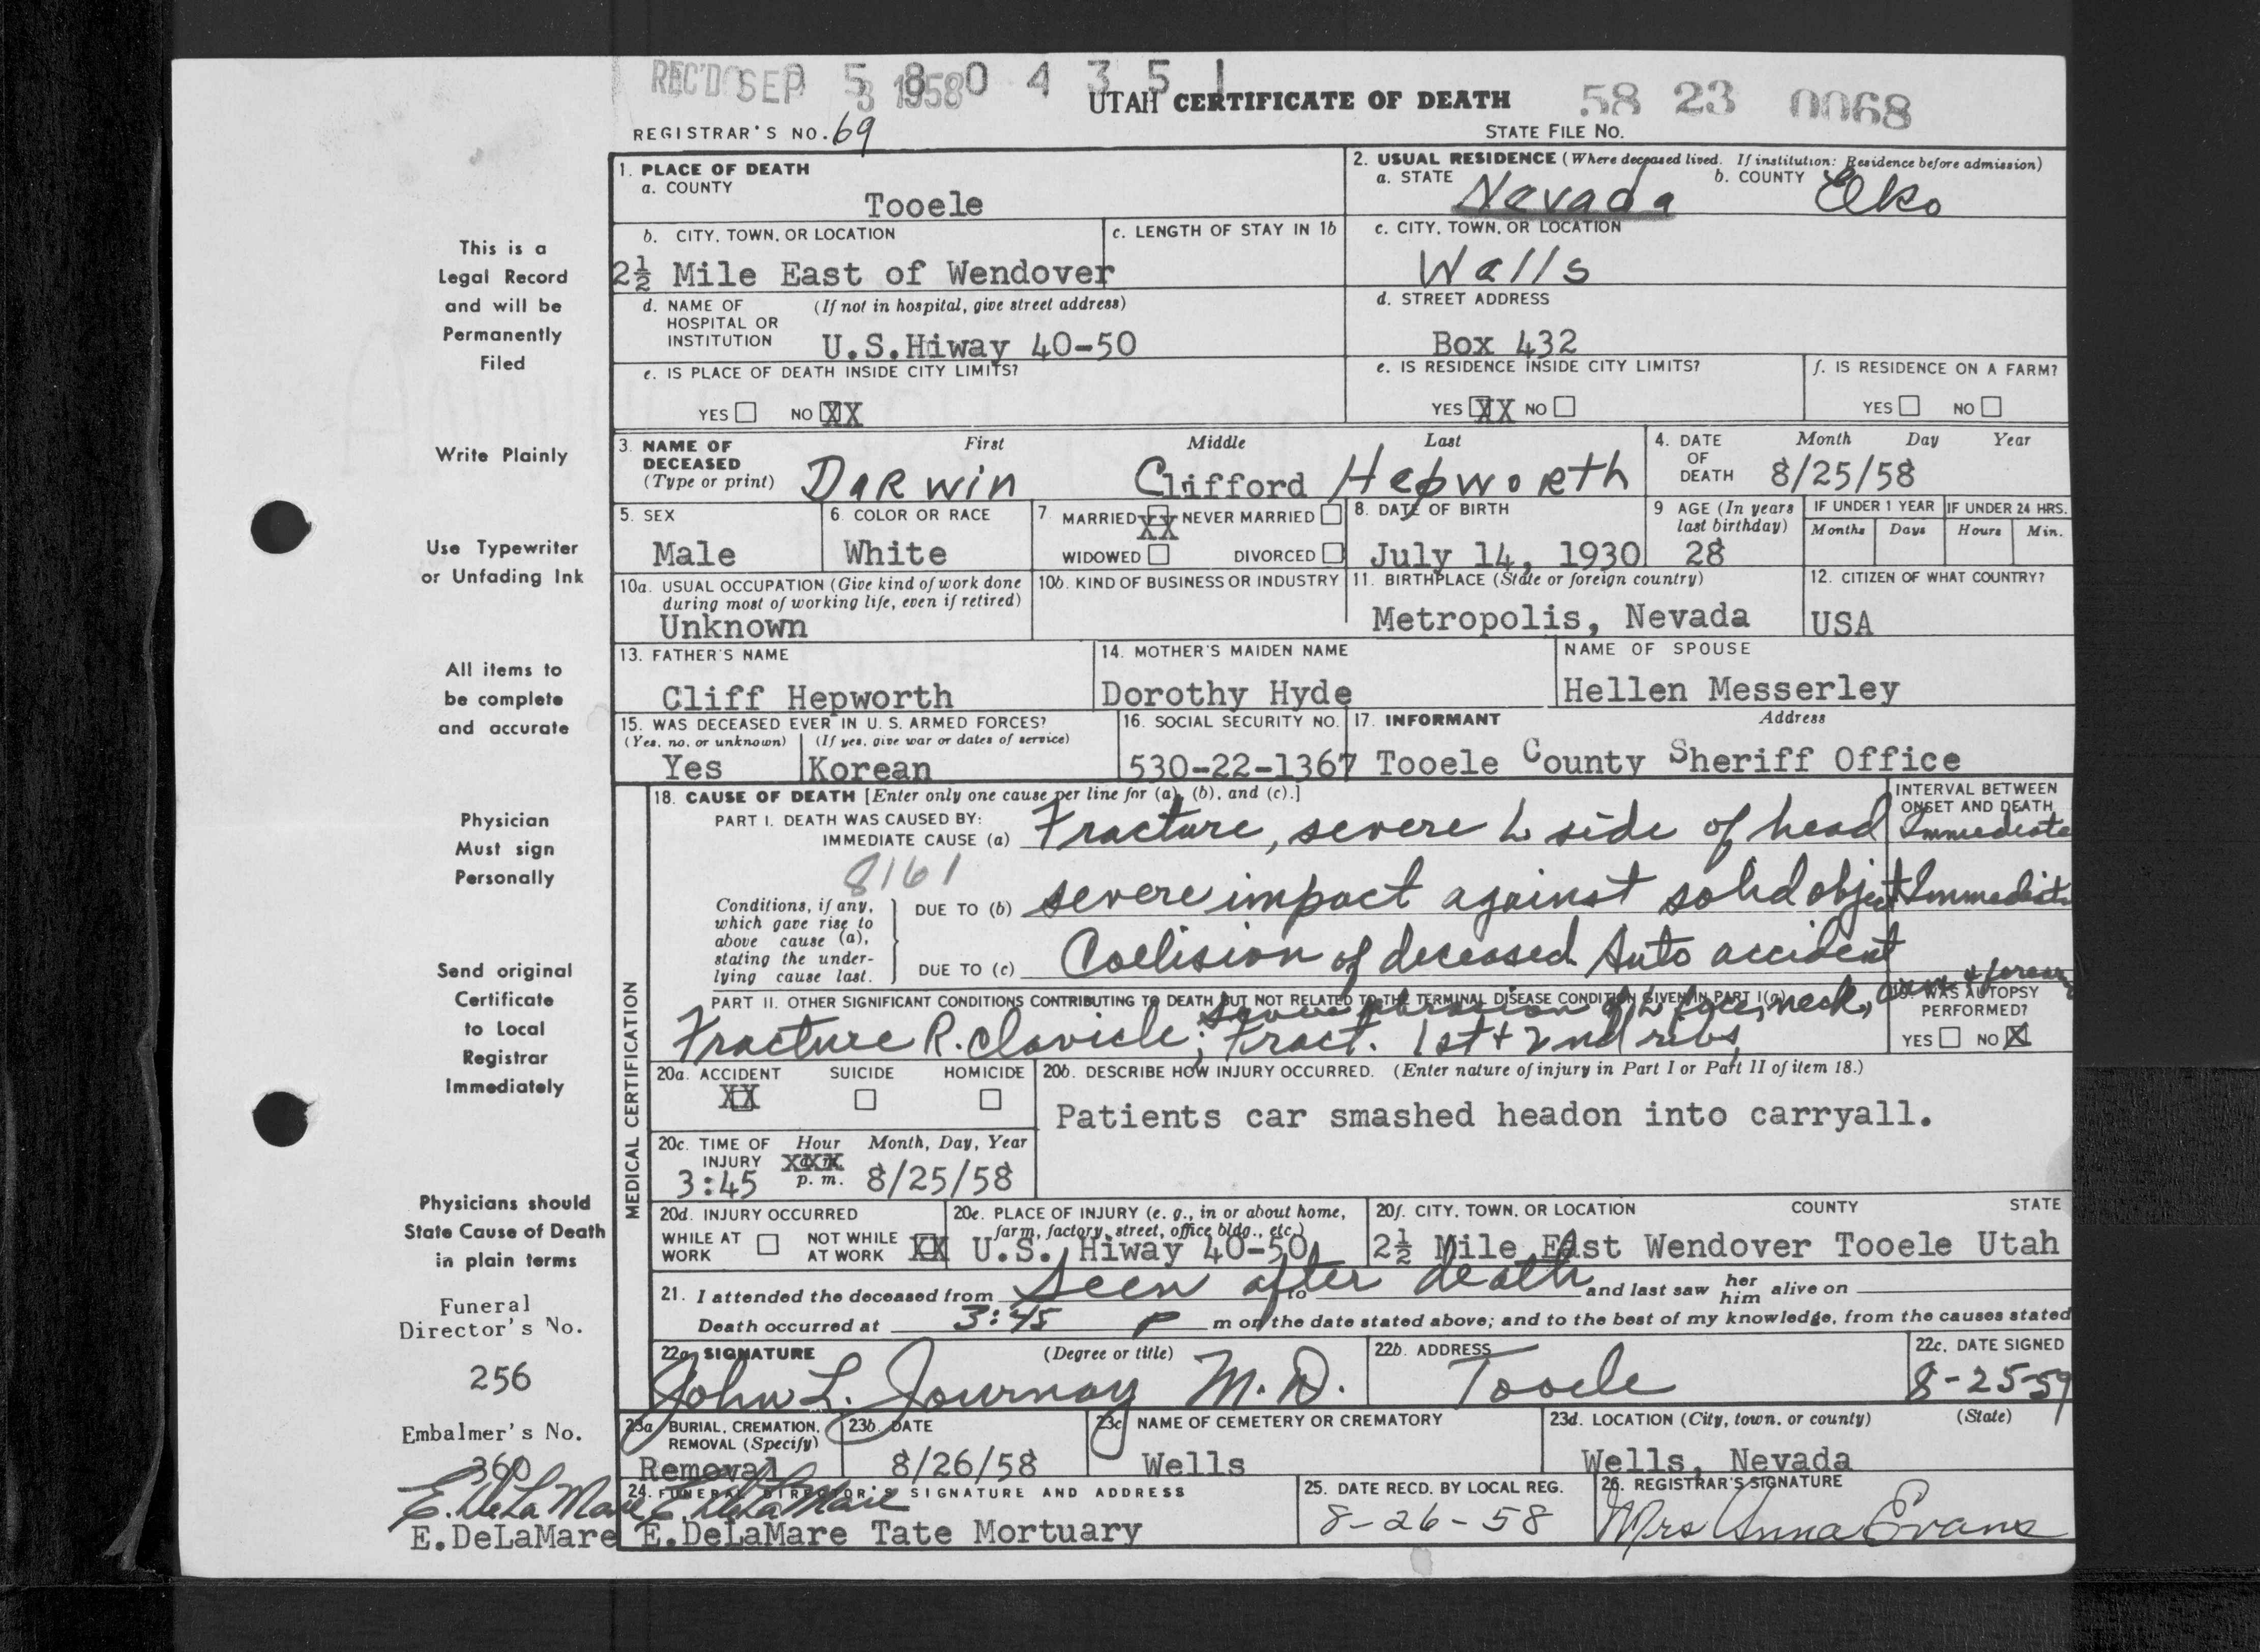 REC'D SEP 3 1958
5 8 0 4 3 5 1
UTAH CERTIFICATE OF DEATH
58 23 0068
REGISTRAR'S NO. 69
STATE FILE NO.
This is a
Legal Record
and will be
Permanently
Filed
Write Plainly
Use Typewriter
or Unfading Ink
All items to
be complete
and accurate
Physician
Must sign
Personally
Send original
Certificate
to Local
Registrar
Immediately
Physicians should
State Cause of Death
in plain terms
Funeral
Director's No.
256
Embalmer's No.
360
E. DeLaMare
E.DeLaMare
1. PLACE OF DEATH
a. COUNTY
Tooele
2. USUAL RESIDENCE (Where deceased lived. If institution: Residence before admission)
a. STATE Nevada b. COUNTY Elko
b. CITY, TOWN, OR LOCATION
2½ Mile East of Wendover
c. LENGTH OF STAY IN 1b
c. CITY, TOWN, OR LOCATION
Walls
d. NAME OF (If not in hospital, give street address)
HOSPITAL OR
INSTITUTION U.S.Hiway 40-50
d. STREET ADDRESS
Box 432
e. IS PLACE OF DEATH INSIDE CITY LIMITS?
YES NO XX
e. IS RESIDENCE INSIDE CITY LIMITS?
YES XX NO
f. IS RESIDENCE ON A FARM?
YES NO
3. NAME OF DECEASED (Type or print)
First Middle Last
Darwin Clifford Hepworth
4. DATE OF DEATH
Month Day Year
8/25/58
5. SEX
Male
6. COLOR OR RACE
White
7. MARRIED XX NEVER MARRIED
WIDOWED DIVORCED
8. DATE OF BIRTH
July 14, 1930
9 AGE (In years last birthday)
28
IF UNDER 1 YEAR
Months Days
IF UNDER 24 HRS.
Hours Min.
10a. USUAL OCCUPATION (Give kind of work done
during most of working life, even if retired)
Unknown
10b. KIND OF BUSINESS OR INDUSTRY
11. BIRTHPLACE (State or foreign country)
Metropolis, Nevada
12. CITIZEN OF WHAT COUNTRY?
USA
13. FATHER'S NAME
Cliff Hepworth
14. MOTHER'S MAIDEN NAME
Dorothy Hyde
NAME OF SPOUSE
Hellen Messerley
15. WAS DECEASED EVER IN U. S. ARMED FORCES?
(Yes, no, or unknown) (If yes, give war or dates of service)
Yes Korean
16. SOCIAL SECURITY NO.
530-22-1367
17. INFORMANT Address
Tooele County Sheriff Office
MEDICAL CERTIFICATION
18. CAUSE OF DEATH [Enter only one cause per line for (a), (b), and (c).]
INTERVAL BETWEEN
ONSET AND DEATH
PART I. DEATH WAS CAUSED BY:
IMMEDIATE CAUSE (a) Fracture, severe L side of head Immediate
8161
Conditions, if any,
which gave rise to
above cause (a),
stating the under-
lying cause last.
DUE TO (b) severe impact against solid object Immediate
DUE TO (c) Coelision of deceased Auto accident
PART II. OTHER SIGNIFICANT CONDITIONS CONTRIBUTING TO DEATH BUT NOT RELATED TO THE TERMINAL DISEASE CONDITION GIVEN IN PART I(a)
severe abrasion of L face, neck, arm + forearm
Fracture R. Clavicle; Fract. 1st + 2nd ribs,
19. WAS AUTOPSY
PERFORMED?
YES NO X
20a. ACCIDENT SUICIDE HOMICIDE
XX
20b. DESCRIBE HOW INJURY OCCURRED. (Enter nature of injury in Part I or Part II of item 18.)
Patients car smashed headon into carryall.
20c. TIME OF INJURY Hour Month, Day, Year
XXX
3:45 p. m. 8/25/58
20d. INJURY OCCURRED
WHILE AT WORK NOT WHILE AT WORK XX
20e. PLACE OF INJURY (e. g., in or about home,
farm, factory, street, office bldg., etc.)
U.S. Hiway 40-50
20f. CITY, TOWN, OR LOCATION COUNTY STATE
2½ Mile East Wendover Tooele Utah
21. I attended the deceased from seen after death to and last saw her him alive on
Death occurred at 3:45 p m on the date stated above; and to the best of my knowledge, from the causes stated
22a. SIGNATURE (Degree or title)
John L. Journay M.D.
22b. ADDRESS
Tooele
22c. DATE SIGNED
8-25-59
23a BURIAL, CREMATION,
REMOVAL (Specify)
Removal
23b. DATE
8/26/58
23c NAME OF CEMETERY OR CREMATORY
Wells
23d. LOCATION (City, town, or county) (State)
Wells, Nevada
24. FUNERAL DIRECTOR'S SIGNATURE AND ADDRESS
E. DeLaMare
E.DeLaMare Tate Mortuary
25. DATE RECD. BY LOCAL REG.
8-26-58
26. REGISTRAR'S SIGNATURE
Mrs Anna Evans